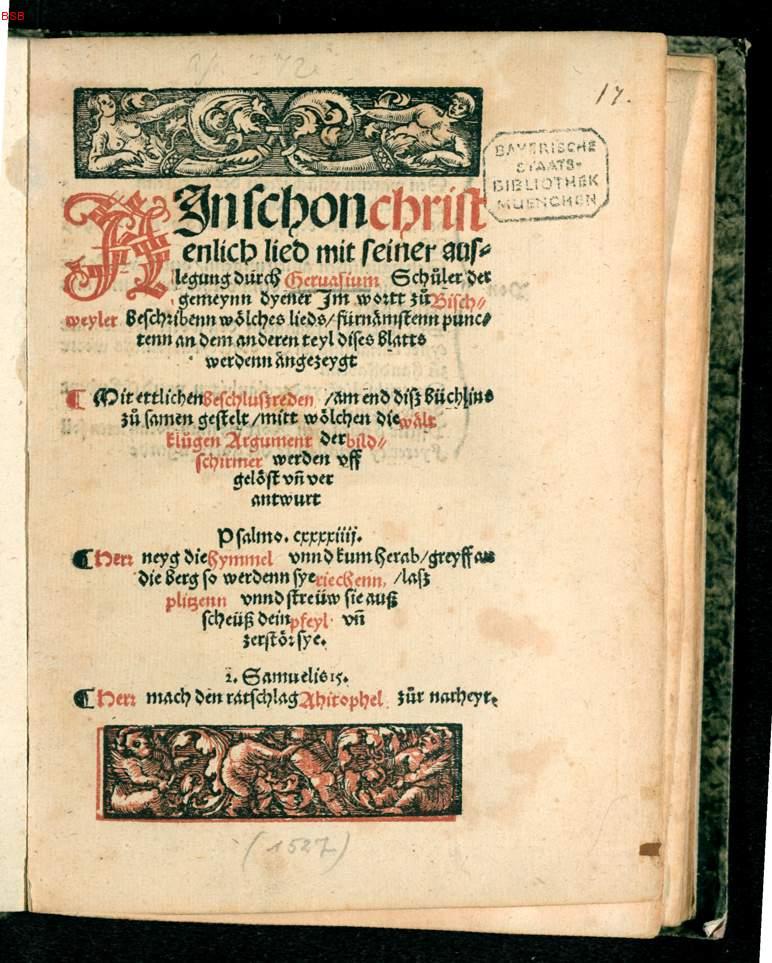 BSB
17.
BAYERISCHE
STAATS-
BIBLIOTHEK
MUENCHEN
AIn schon christ
enlich lied mit seiner aus⸗
legung durch Geruasium Schüler der
gemeynn dyener Im wortt zů Bisch⸗
weyler Beschribenn wölches lieds/ fürnämstenn punc⸗
tenn an dem anderen teyl dises blatts
werdenn angezeygt
¶ Mit ettlichen Beschluszreden /am end disz büchlins
zů samen gestelt/mitt wölchen die wält
klůgen Argument der bild⸗
schirmer werden vff
gelöst vn̄ ver
antwurt
Psalmo. cxxxxiiij.
¶ Herr neyg die hymmel vnnd kum herab/greyff an
die berg so werdenn sye riechenn, /lasz
plitzenn vnnd streüw sie ausz
scheüsz dein pfeyl vn̄
zerstör sye.
2. Samuelis 15.
¶ Herr mach den ratschlag Ahitophel zůr narheyt.
(1527)